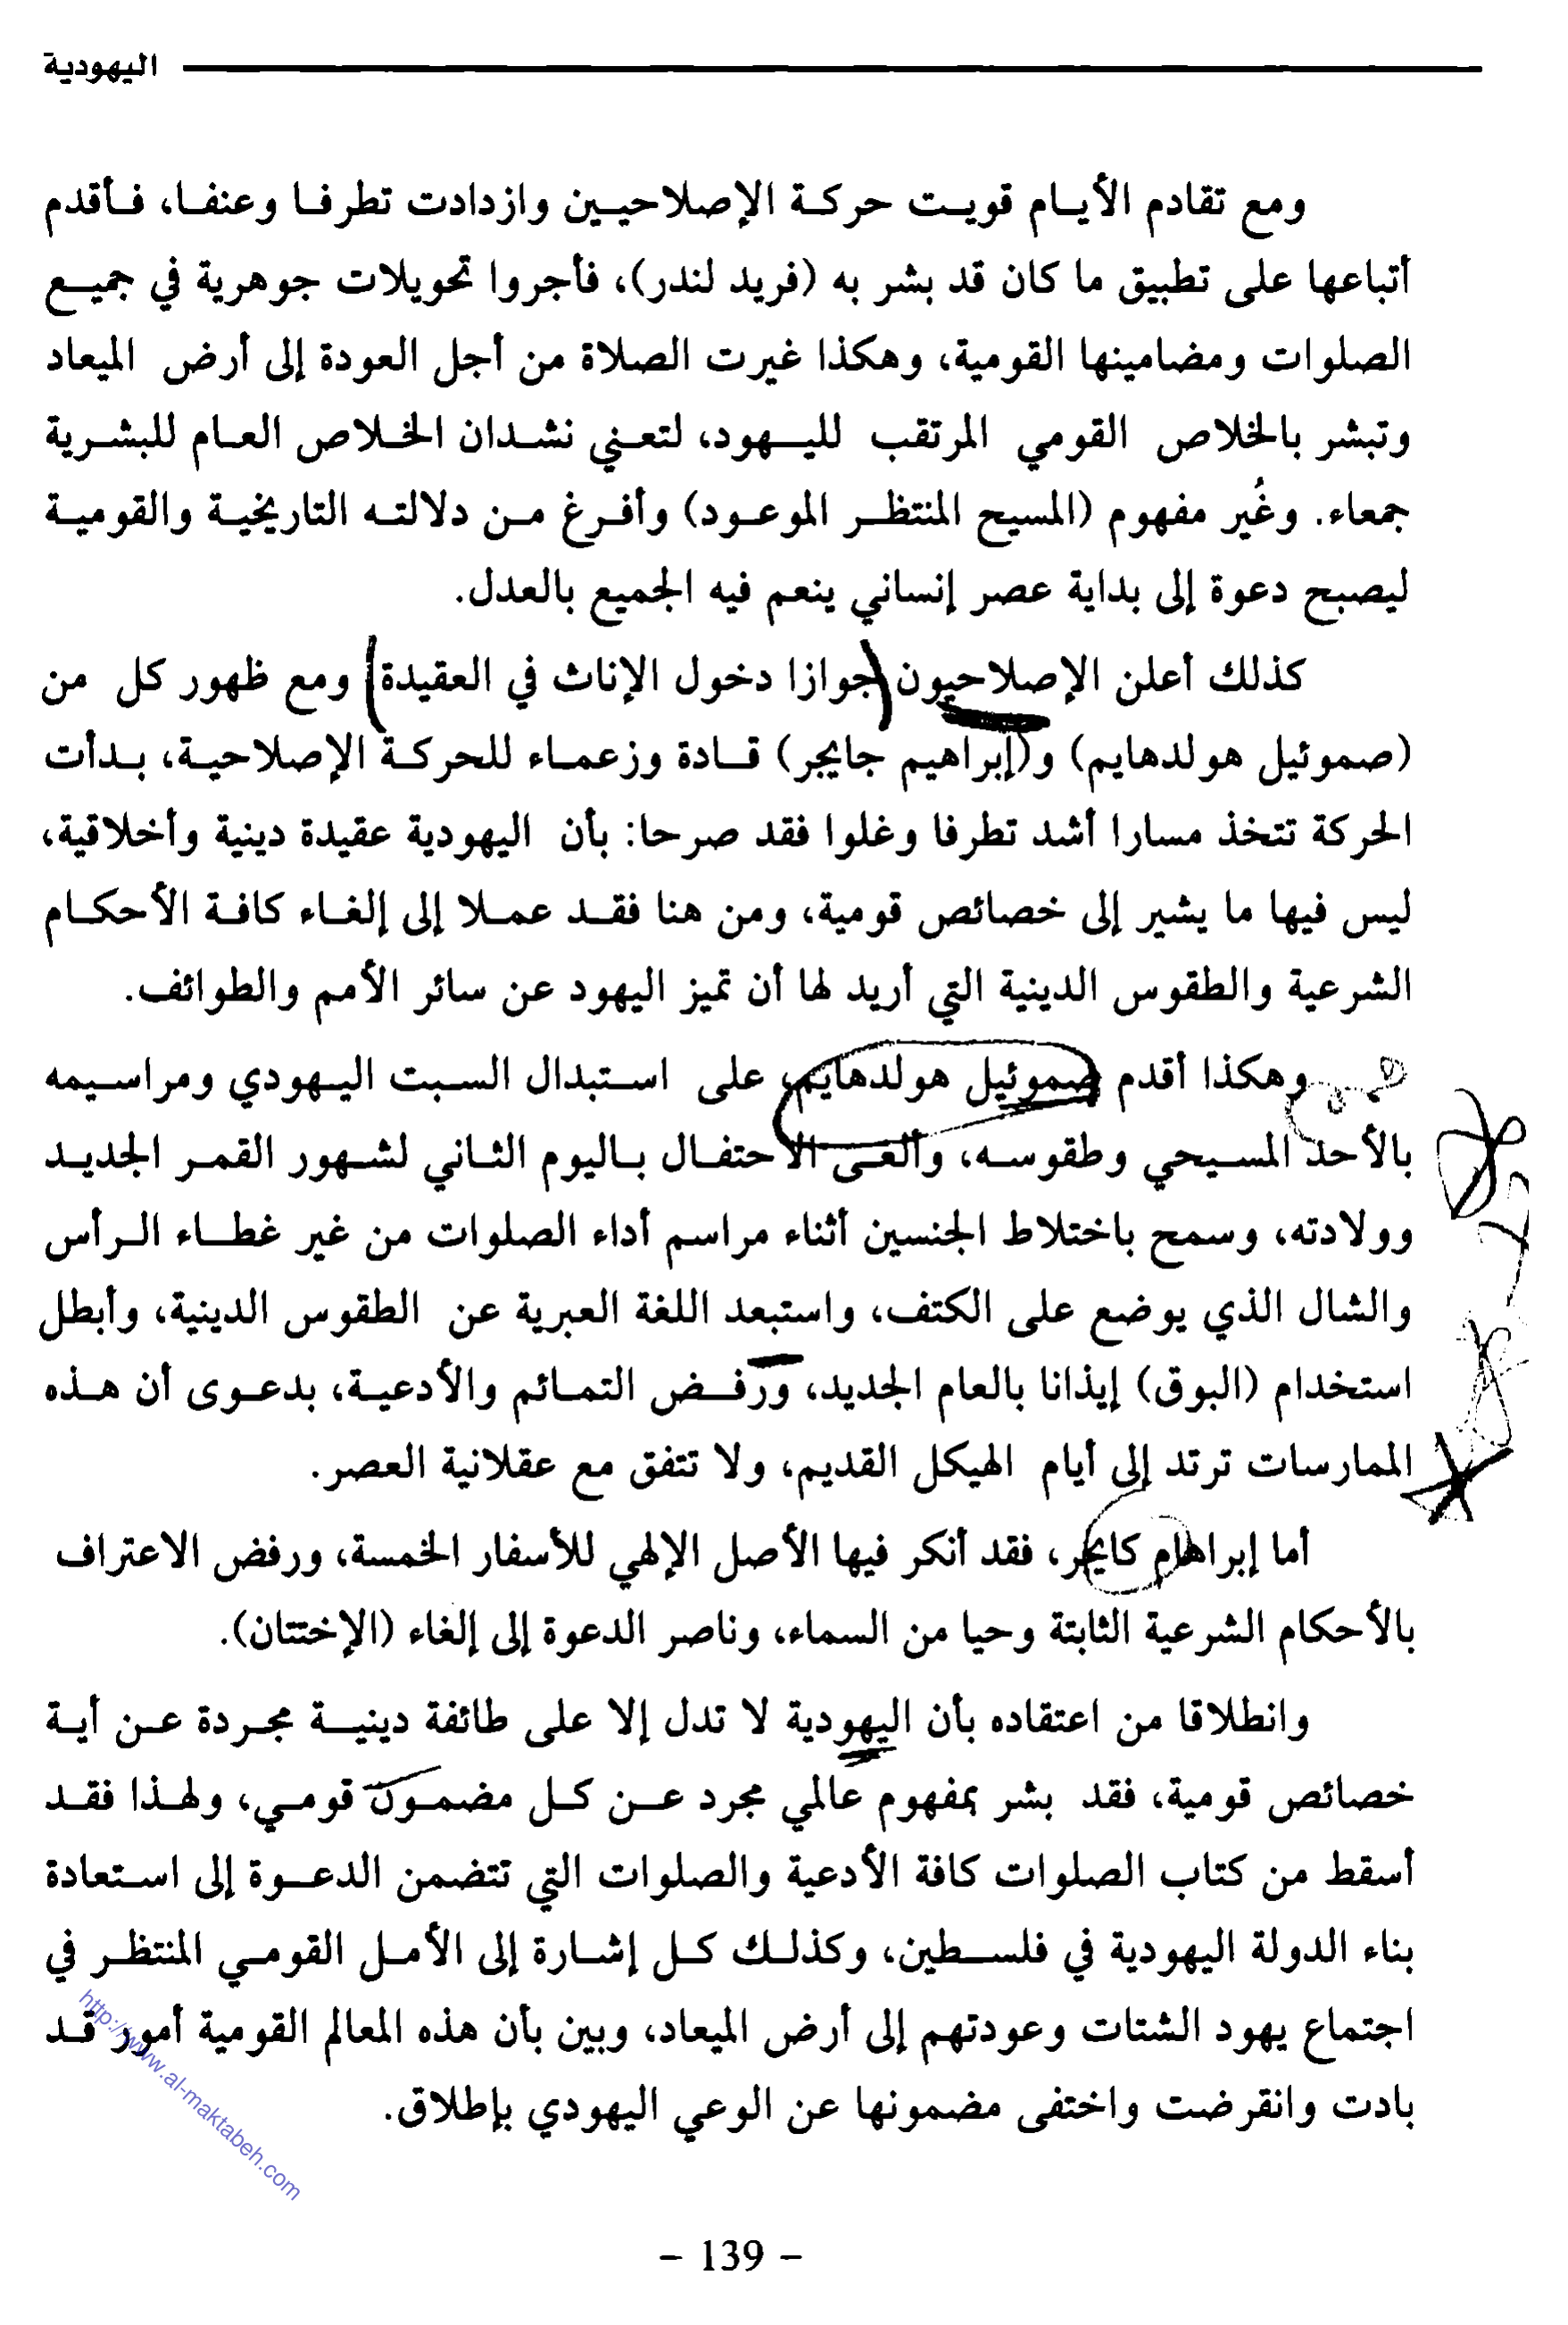 اليهودية
ومع تقادم الأيام قويت حركة الإصلاحيين وازدادت تطرفا وعنفا، فأقدم
أتباعها على تطبيق ما كان قد بشر به (فريد لندر)، فأجروا تحويلات جوهرية في جميع
الصلوات ومضامينها القومية، وهكذا غيرت الصلاة من أجل العودة إلى أرض الميعاد
وتبشر بالخلاص القومي المرتقب لليهود، لتعني نشدان الخلاص العام للبشرية
جمعاء. وغُير مفهوم (المسيح المنتظر الموعود) وأفرغ من دلالته التاريخية والقومية
ليصبح دعوة إلى بداية عصر إنساني ينعم فيه الجميع بالعدل.
كذلك أعلن الإصلاحيون (جوازا دخول الإناث في العقيدة) ومع ظهور كل من
(صموئيل هولدهايم) و(إبراهيم جايجر) قادة وزعماء للحركة الإصلاحية، بدأت
الحركة تتخذ مسارا أشد تطرفا وغلوا فقد صرحا: بأن اليهودية عقيدة دينية وأخلاقية،
ليس فيها ما يشير إلى خصائص قومية، ومن هنا فقد عملا إلى إلغاء كافة الأحكام
الشرعية والطقوس الدينية التي أريد لها أن تميز اليهود عن سائر الأمم والطوائف.
وهكذا أقدم صموئيل هولدهايم، على استبدال السبت اليهودي ومراسيمه
بالأحد المسيحي وطقوسه، وألغى الاحتفال باليوم الثاني لشهور القمر الجديد
وولادته، وسمح باختلاط الجنسين أثناء مراسم أداء الصلوات من غير غطاء الرأس
والشال الذي يوضع على الكتف، واستبعد اللغة العبرية عن الطقوس الدينية، وأبطل
استخدام (البوق) إيذانا بالعام الجديد، ورفض التمائم والأدعية، بدعوى أن هذه
الممارسات ترتد إلى أيام الهيكل القديم، ولا تتفق مع عقلانية العصر.
أما إبراهام كايجر، فقد أنكر فيها الأصل الإلهي للأسفار الخمسة، ورفض الاعتراف
بالأحكام الشرعية الثابتة وحيا من السماء، وناصر الدعوة إلى إلغاء (الإختتان).
وانطلاقا من اعتقاده بأن اليهودية لا تدل إلا على طائفة دينية مجردة عن أية
خصائص قومية، فقد بشر بمفهوم عالمي مجرد عن كل مضمون قومي، ولهذا فقد
أسقط من كتاب الصلوات كافة الأدعية والصلوات التي تتضمن الدعوة إلى استعادة
بناء الدولة اليهودية في فلسطين، وكذلك كل إشارة إلى الأمل القومي المنتظر في
اجتماع يهود الشتات وعودتهم إلى أرض الميعاد، وبين بأن هذه المعالم القومية أمور قد
بادت وانقرضت واختفى مضمونها عن الوعي اليهودي بإطلاق.
http://www.al-maktabeh.com
- 139 -